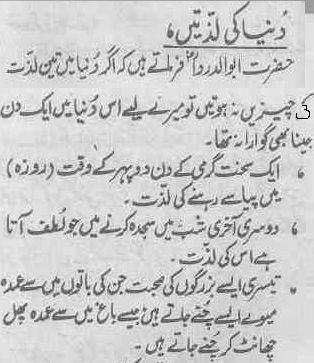 دُنیا کی لذّتیں،
حضرت ابوالدرداءؓ فرماتے ہیں کہ اگر دُنیا میں تین لذّت
کی چیزیں نہ ہوتیں تو میرے لیے اس دُنیا میں ایک دن
جینا بھی گوارا نہ تھا۔
ایک سخت گرمی کے دن دوپہر کے وقت (روزہ)
میں پیاسے رہنے کی لذّت۔
دوسری آخری شب میں سجدہ کرنے میں جو لُطف آتا
ہے اس کی لذّت۔
تیسری ایسے بزرگوں کی صحبت جن کی باتوں میں سے عمدہ
میوے ایسے چُنے جاتے ہیں جیسے باغ میں سے عمدہ پھل
چھانٹ کر چُنے جاتے ہیں۔